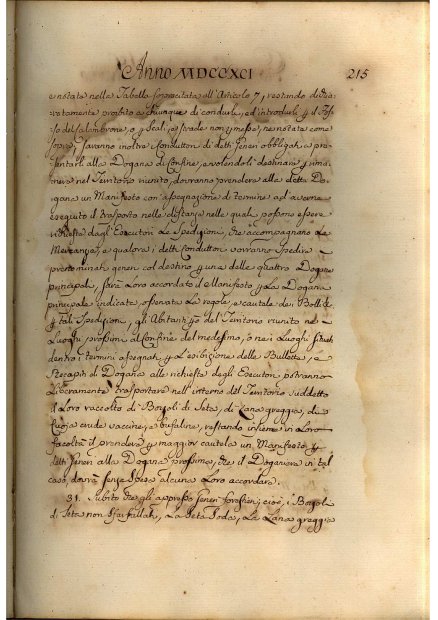 Anno MDCCXCI 215
enotate nella Tabella soprascitata all'Articolo 7, restando divisa
ratamente proibito a chiunque di condurle, ed introdurle il Fos
so del Calambrone, o Scali, e strade non permesse, ne notate come
sopra; saranno inoltre i Conduttori di detti generi obbligati a pre
sentarli alla Dogana di Confine, e volendoli destinare rima
nere nel Territorio riunito, dovranno prendere alla detta Do
gana un Manifesto con assegnazione di termine ad avere
eseguito il trasporto nelle distanze nelle quali possono essere
richieste dagli Esecutori le Spedizioni, che accompagnano le
Mercanzie, e qualora i detti Conduttori vorranno spedire
prenominati generi col destino una delle quattro Dogane
principali, sarà loro accordato il Manifesto la Dogana
principale indicata, osservate le regole, e cautele dei Bolli
tali Spedizioni, gli Abitanti del Territorio riunito ne
Luoghi prossimi al Confine del medesimo, o nei Luoghi situati
dentro i termini assegnati, l'esibizione delle Bullette, e
Recapiti di Dogana alle richieste degli Esecutori potranno
liberamente trasportare nell'interno del Territorio suddetto
il Loro raccolto di Bozzoli di Seta, di Lana greggia, di
Cuoja crude vaccine, e bufaline, restando insieme in Loro
facoltà il prendere maggior cautela un Manifesto
detti generi alla Dogana prossima, che il Doganiere in tal
caso, dovrà senza spesa alcuna Loro accordare.
31. Subito che gli appresso generi forestieri, cioè, i Bozzoli
di Seta non sfarfallati, la Seta soda, la Lana greggia